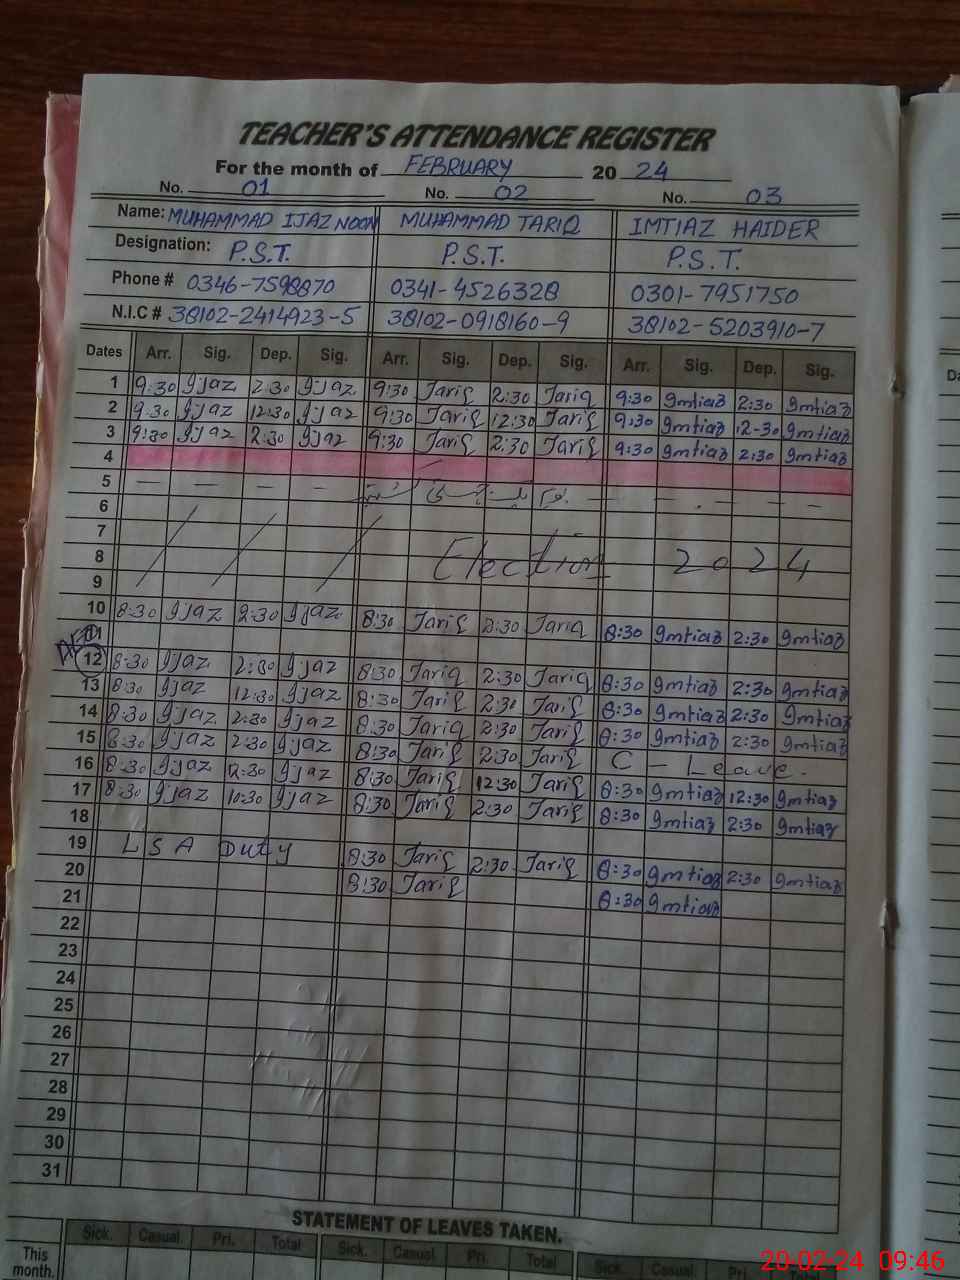 TEACHER'S ATTENDANCE REGISTER
For the month of FEBRUARY 20 24
No. 01 No. 02 No. 03
Name: MUHAMMAD IJAZ NOON MUHAMMAD TARIQ IMTIAZ HAIDER
Designation: P.S.T. P.S.T. P.S.T.
Phone # 0346-7598870 0341-4526328 0301-7951750
N.I.C # 38102-2414923-5 38102-0918160-9 38102-5203910-7
Dates Arr. Sig. Dep. Sig. Arr. Sig. Dep. Sig. Arr. Sig. Dep. Sig.
1 9:30 Ijaz 2:30 Ijaz 9:30 Tariq 2:30 Tariq 9:30 Imtiaz 2:30 Imtiaz
2 9:30 Ijaz 12:30 Ijaz 9:30 Tariq 12:30 Tariq 9:30 Imtiaz 12-30 Imtiaz
3 9:30 Ijaz 2:30 Ijaz 9:30 Tariq 2:30 Tariq 9:30 Imtiaz 2:30 Imtiaz
4
5 — — — — — — — — —
6
7
8 Election 2024
9
10 8:30 Ijaz 2:30 Ijaz 8:30 Tariq 2:30 Tariq 8:30 Imtiaz 2:30 Imtiaz
12 8:30 Ijaz 2:30 Ijaz 8:30 Tariq 2:30 Tariq 8:30 Imtiaz 2:30 Imtiaz
13 8:30 Ijaz 12:30 Ijaz 8:30 Tariq 2:30 Tariq 8:30 Imtiaz 2:30 Imtiaz
14 8:30 Ijaz 2:30 Ijaz 8:30 Tariq 2:30 Tariq 8:30 Imtiaz 2:30 Imtiaz
15 8:30 Ijaz 2:30 Ijaz 8:30 Tariq 2:30 Tariq C - Leave.
16 8:30 Ijaz 12:30 Ijaz 8:30 Tariq 12:30 Tariq 8:30 Imtiaz 12:30 Imtiaz
17 8:30 Ijaz 10:30 Ijaz 8:30 Tariq 2:30 Tariq 8:30 Imtiaz 2:30 Imtiaz
18
19 LSA Duty 8:30 Tariq 2:30 Tariq 8:30 Imtiaz 2:30 Imtiaz
20 8:30 Tariq 8:30 Imtiaz
21
22
23
24
25
26
27
28
29
30
31
STATEMENT OF LEAVES TAKEN.
Sick. Casual. Pri. Total Sick. Casual Pri. Total Sick. Casual Pri. Total
This month.
20-02-24 09:46